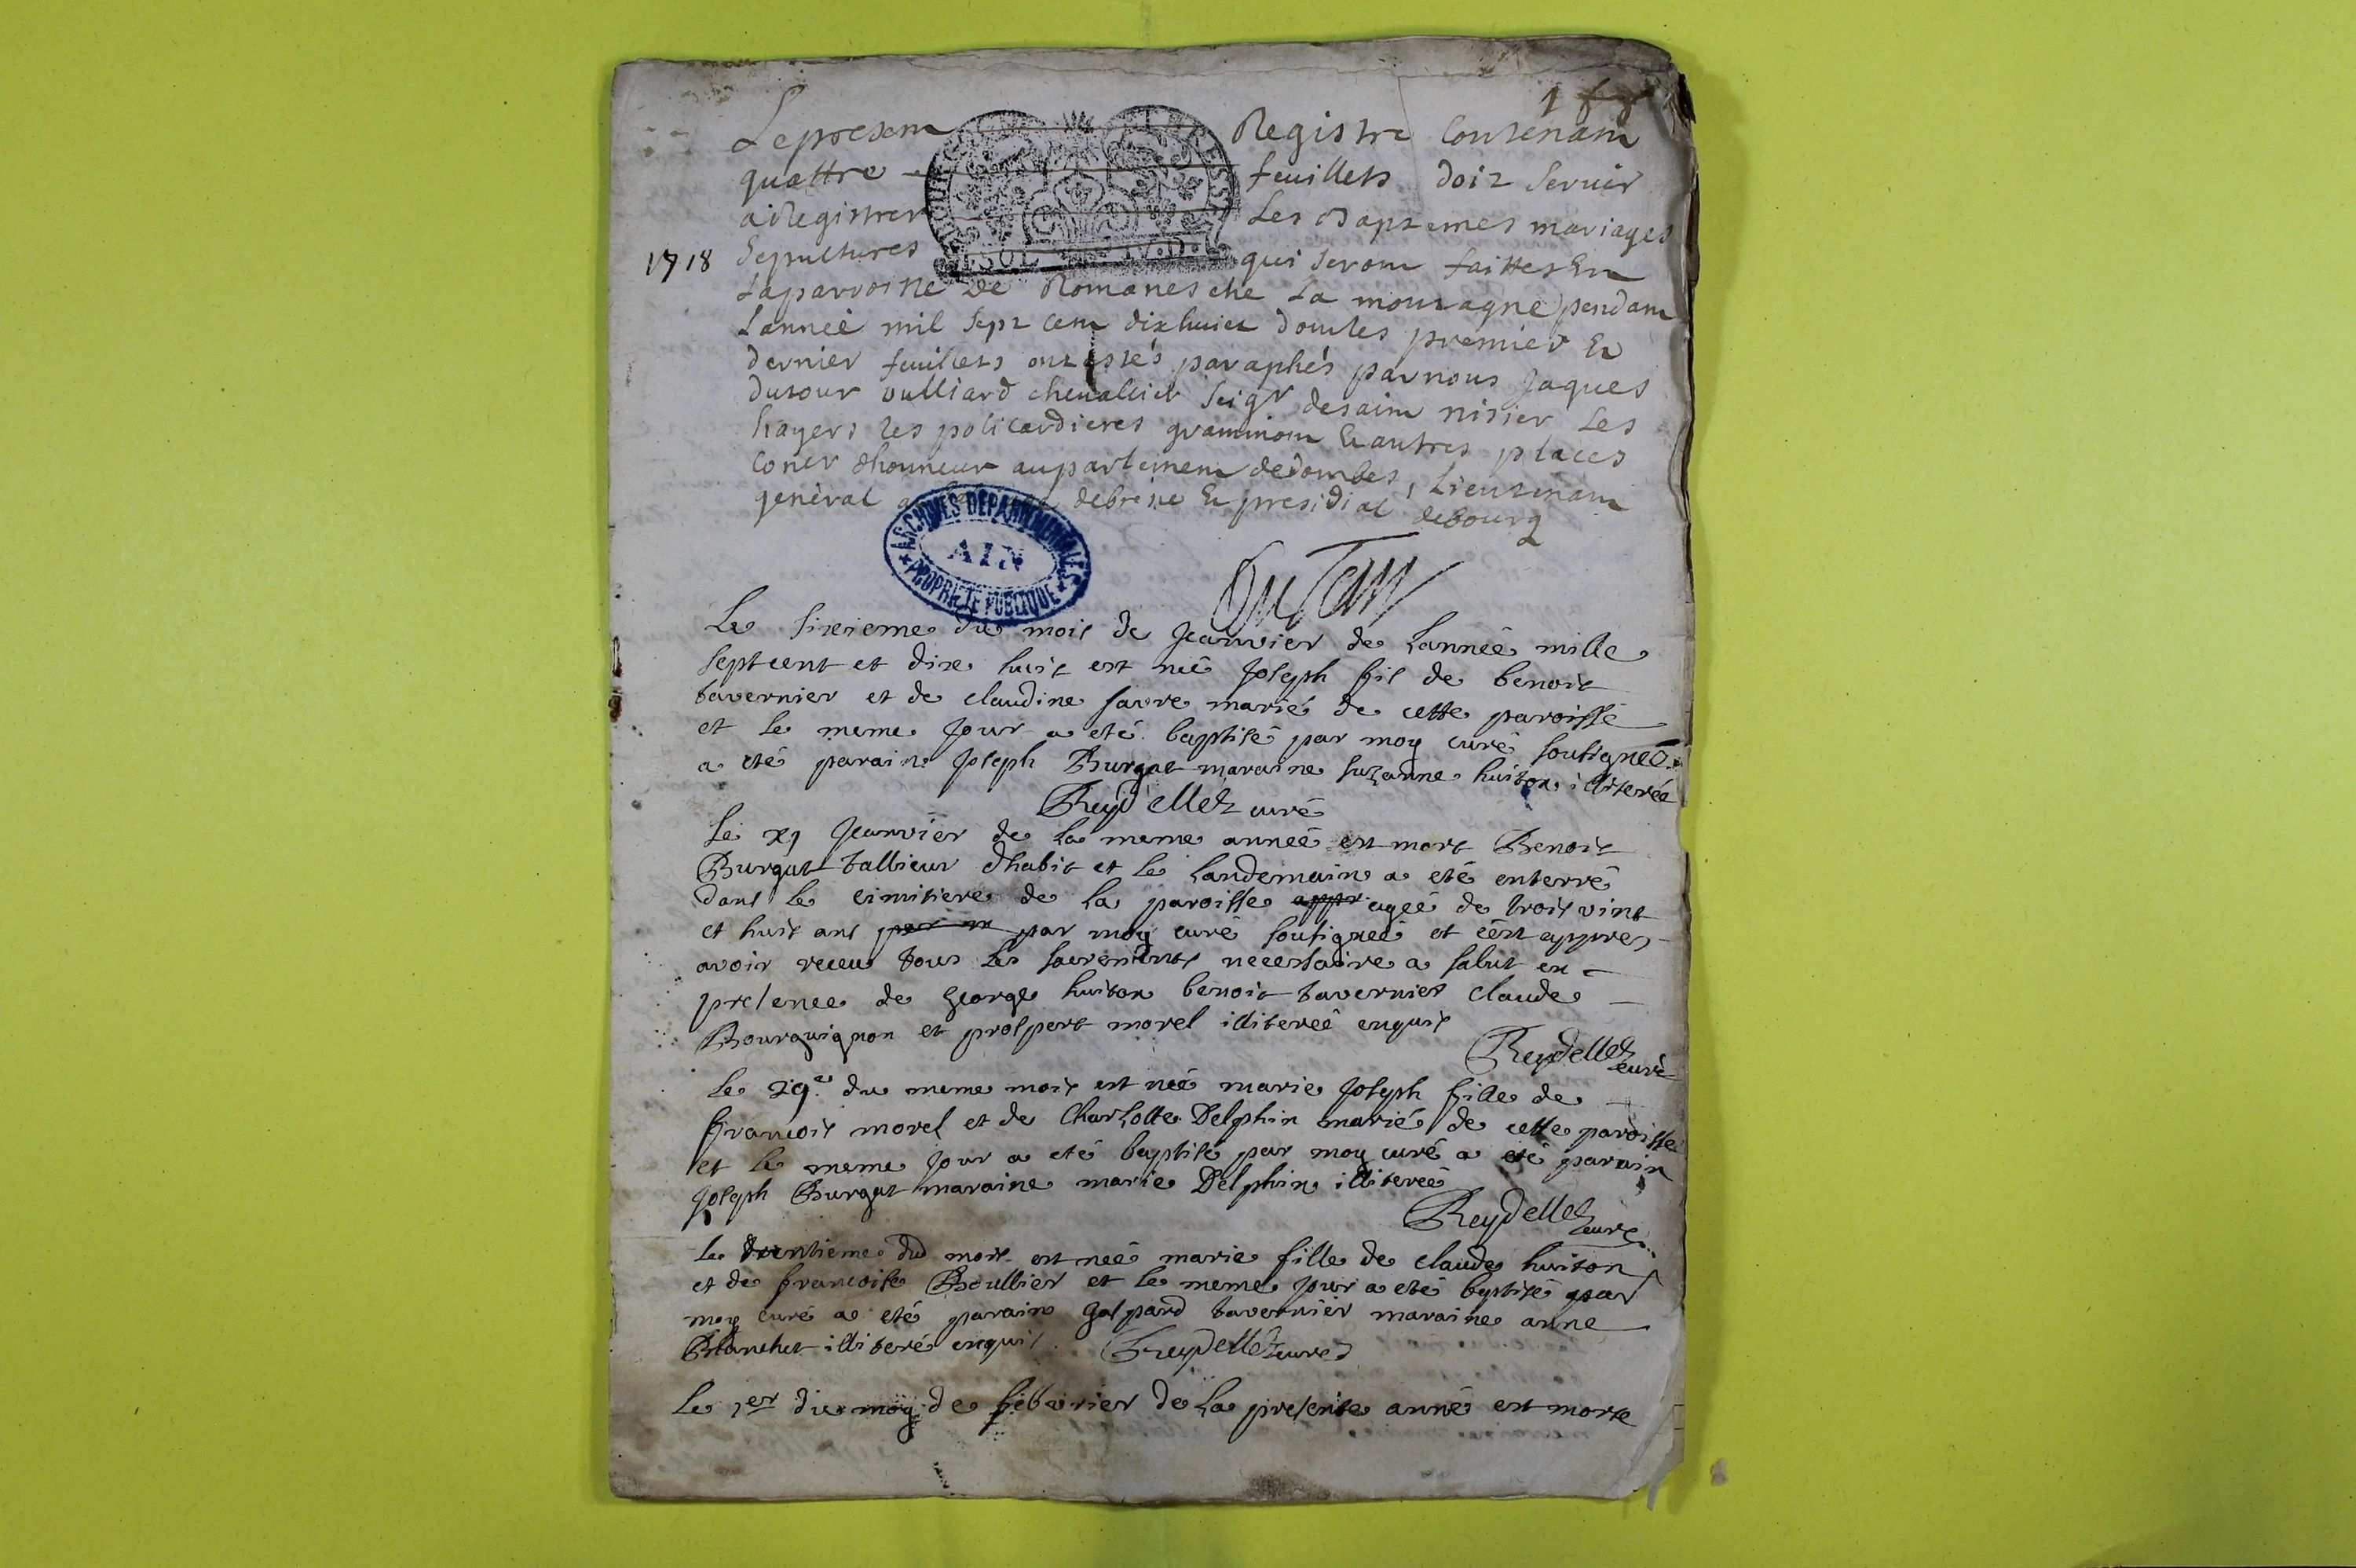 1 f
Le present Registre Contenant
quattre feuillets doit servir
a Registrer Les Baptemes mariages
1718 Sepultures qui seront faittes En
La parroisse de Romanesche La montagne pendant
L'anneé mil sept cent dix huict dont les premier Et
dernier feuillets ont estés paraphés par nous Jaques
dutour vulliard chevallier seigr de saint nisier Les
hayers les policardieres grammont Et autres places
coner d'honneur au parlement de dombes, Lieutenant
general de bresse Et presidial de bourg
SOL
ARCHIVES DEPARTEMENTALES
AIN
PROPRIETE PUBLIQUE
Dutour
Le sixieme du mois de Jeanvier de L'anneé mille
sept cent et dixe huit est né Joseph fil de benoit
tavernier et de claudine favre marié de cette paroisse
et Le meme Jour a eté baptisé par moy curé soutigneé
a eté parain Joseph Burgat maraine suzanne huiton illitereé
Reydellet curé
Le xj Jeanvier de La meme anneé est mort Benoit
Burgat tallieur d'habit et Le Landemain a eté enterré
dans Le cimitiere de La paroisse appr ageé de troit vint
et huit ans par m par moy curé soutigneé et cést appres
avoir receu tous Les sacrements necessaire a salut en
presence de george huiton benoit tavernier claude
Bourguignon et prospert morel illitereé enquis
Reydellet curé
Le 29e du meme mois est neé marie Joseph fille de
francois morel et de CharLotte Delphin marié de cette paroisse
et Le meme Jour a eté baptisé par moy curé a eté parain
Joseph Burgat maraine marie Delphin illitereé
Reydellet curé
Le trentieme dud mois est neé marie fille de claude huiton
et de francoise Boullier et Le meme Jour a eté baptisé par
moy curé a eté parain gaspard tavernier maraine anne
Blanchet illiteré enquis Reydellet curé
Le 1er du moy de febvrier de La presente anné est morte